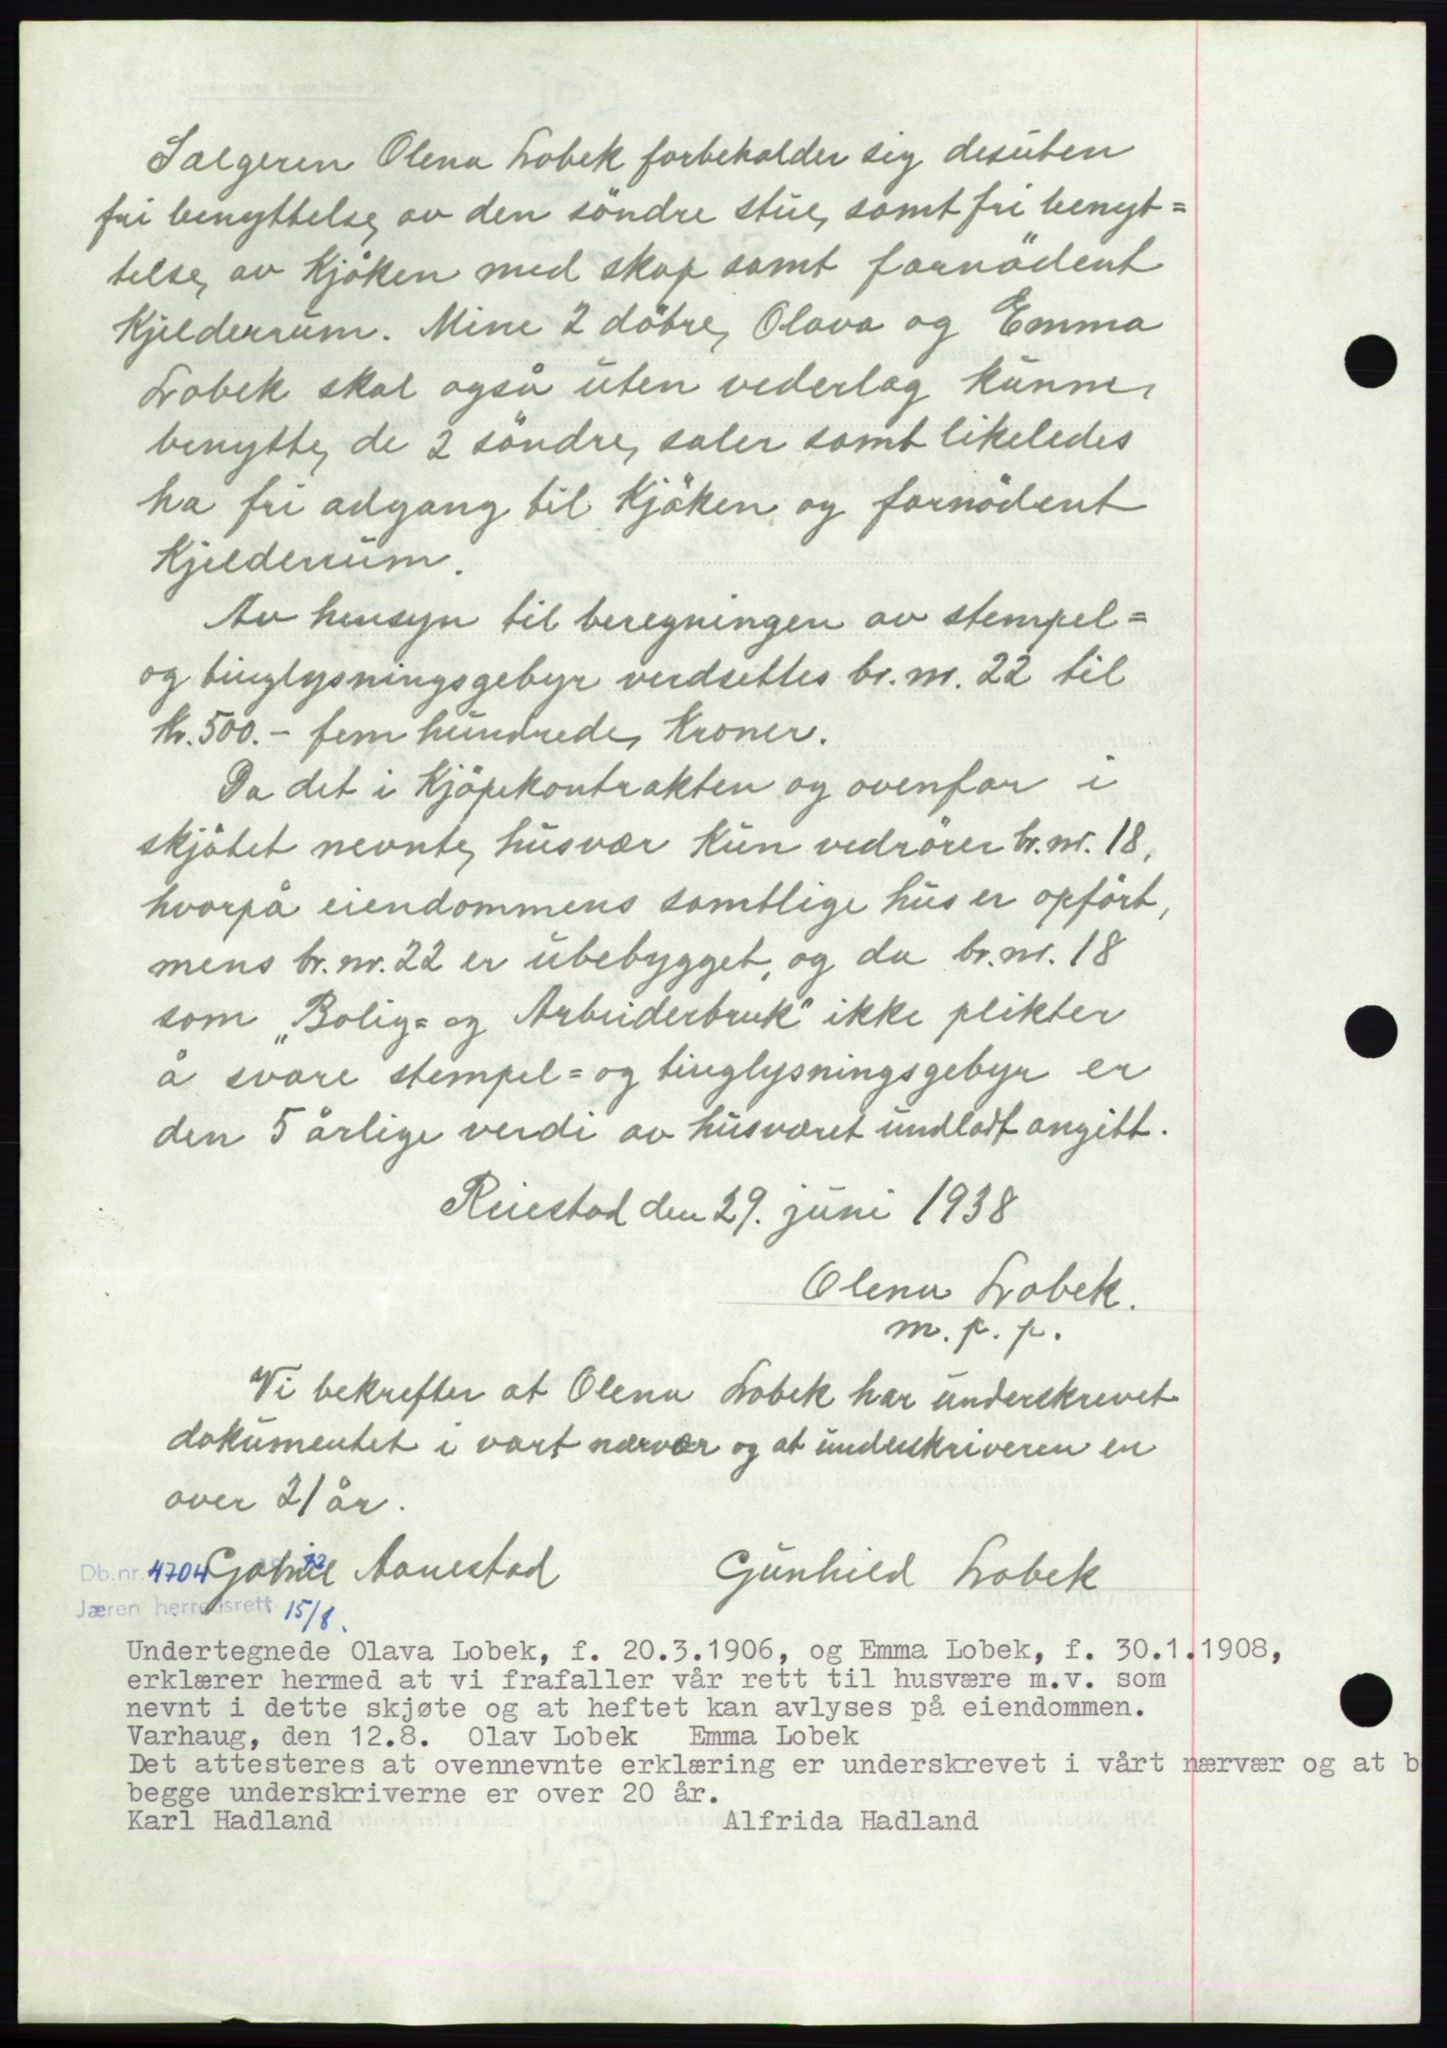 Sælgeren Olena Lobek forbeholder sig desuten
fri benyttelse av den söndre stue, samt fri benyt=
telse av Kjöken med skap samt fornödent
Kjelderrum. Mine 2 döbre, Olava og Emma
Lobek skal også uten vederlag kunne
benytte de 2 söndre saler samt likeledes
ha fri adgang til Kjöken og fornödent
Kjelderrum.
Av hensyn til beregningen av stempel=
og tinglysningsgebyr verdsettes br. nr. 22 til
Kr. 500.- fem hundrede Kroner.
Da det i Kjöpekontrakten og ovenfor i
skjötet nevnte husvær kun vedrörer br. nr. 18,
hvorpå eiendommens samtlige hus er opfört,
mens br. nr. 22 er ubebygget, og da br. nr. 18
som „Bolig= og Arbeiderbruk" ikke plikter
å svare stempel= og tinglysningsgebyr er
den 5 årlige verdi av husværet undladt angitt.
Reiestad den 29. juni 1938
Olena Lobek.
m. p. p.
Vi bekrefter at Olena Lobek har underskrevet
dokumentet i vort nærvær og at underskriveren er
over 21 år.
Gabriel Aanestad Gunhild Lobek
Db. nr. 4704 1972
Jæren herredsrett 15/8.
Undertegnede Olava Lobek, f. 20.3.1906, og Emma Lobek, f. 30.1.1908,
erklærer hermed at vi frafaller vår rett til husvære m.v. som
nevnt i dette skjøte og at heftet kan avlyses på eiendommen.
Varhaug, den 12.8. Olav Lobek Emma Lobek
Det attesteres at ovennevnte erklæring er underskrevet i vårt nærvær og at b
begge underskriverne er over 20 år.
Karl Hadland Alfrida Hadland